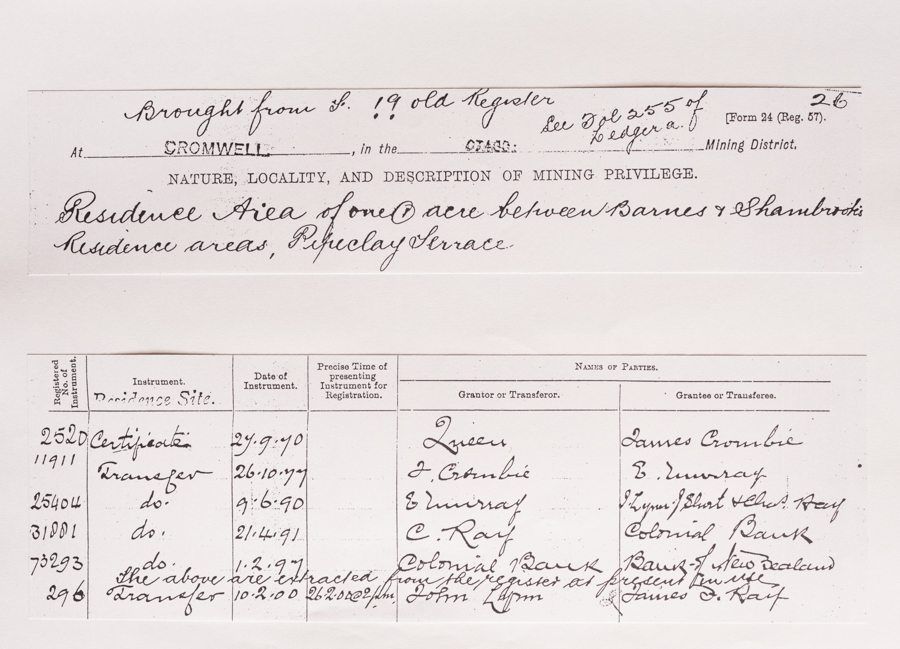 Brought from F. 19 old Register
26
See Fol 255 of
Ledger a.
[Form 24 (Reg. 57).
At CROMWELL, in the OTAGO. Mining District.
NATURE, LOCALITY, AND DESCRIPTION OF MINING PRIVILEGE.
Residence Area of one (1) acre between Barnes & Shambrook's
Residence areas, Pipeclay Terrace
Registered No. of Instrument. Instrument. Date of Instrument. Precise Time of presenting Instrument for Registration. NAMES OF PARTIES.
Residence Site. Grantor or Transferor. Grantee or Transferee.
2520 Certificate 27.9.70 Queen James Crombie
11911 Transfer 26.10.77 J. Crombie E. Murray
25404 do. 9.6.90 E Murray J Lynn J Short & Chas. Hay
31881 do. 21.4.91 C. Ray Colonial Bank
73293 do. 1.2.97 Colonial Bank Bank of New Zealand
The above are extracted from the register at present in use
296 Transfer 10.2.00 26.2.00 @ 2 p.m. John Lynn James F. Ray